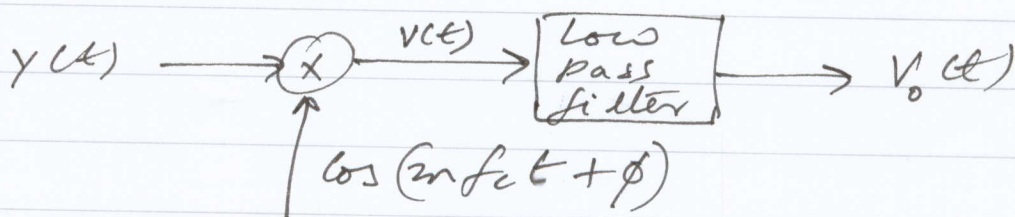 y(t)
×
v(t)
Low
pass
filter
V₀(t)
cos(2πfct + φ)